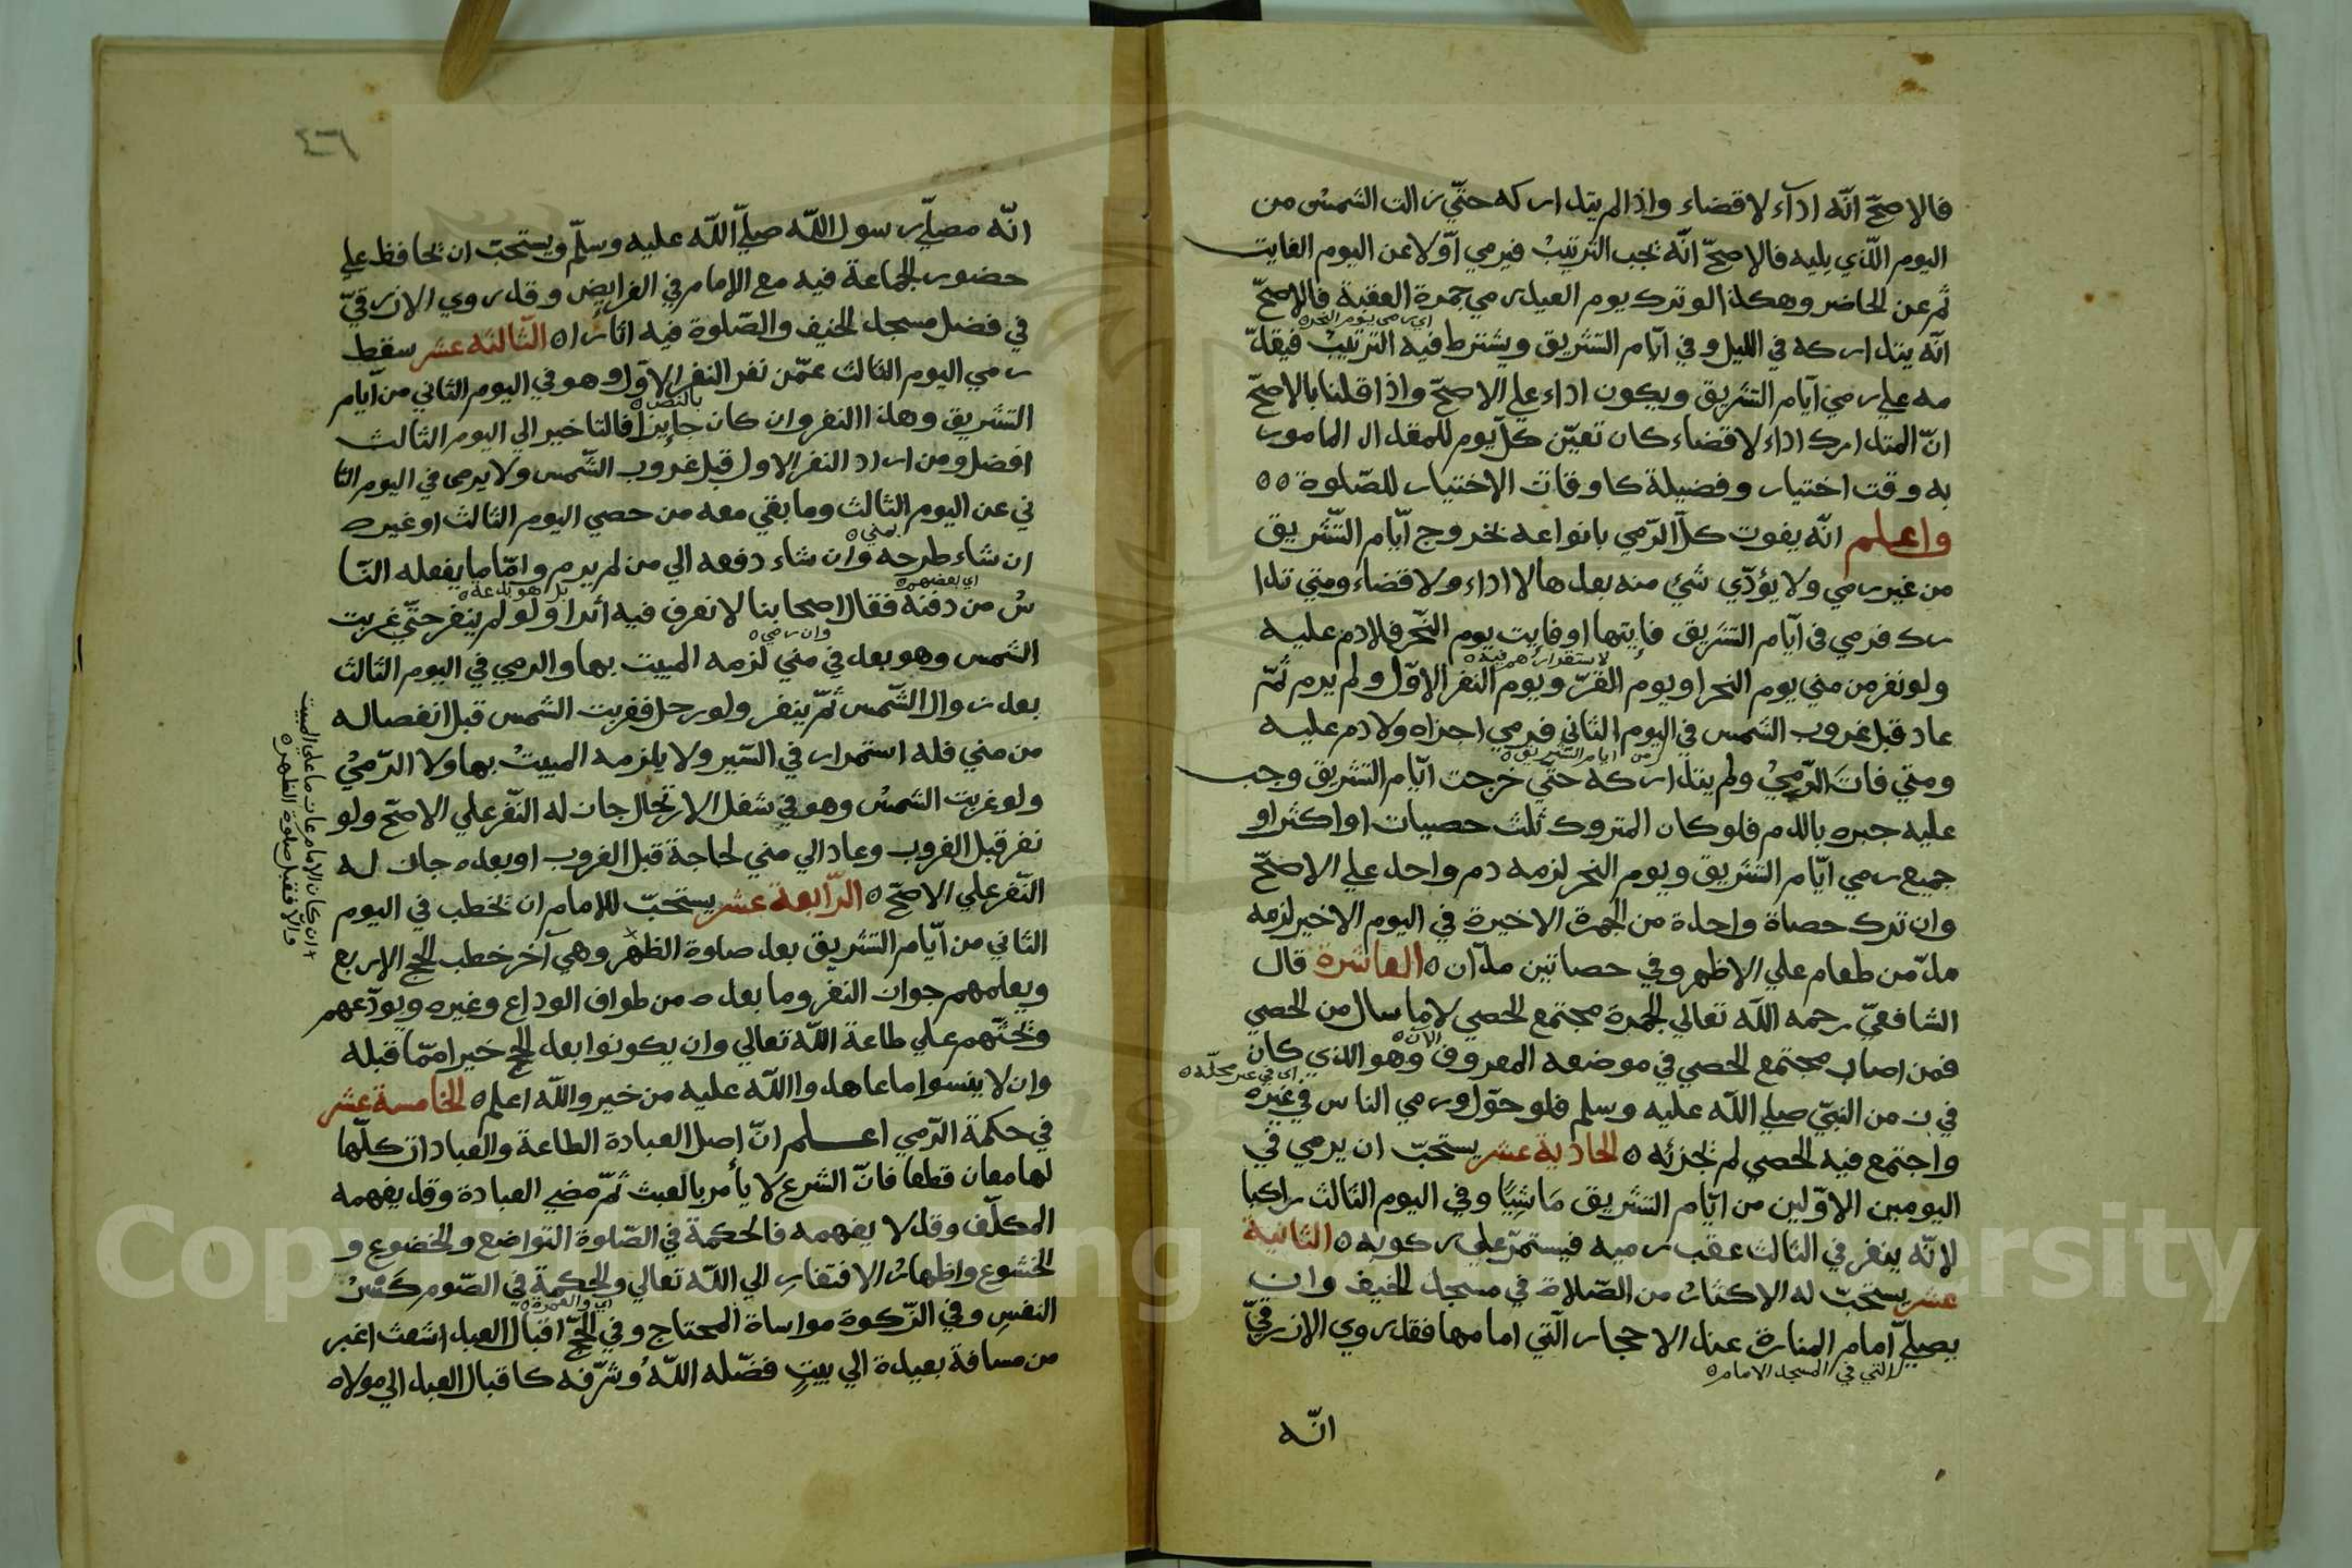 فالاصحّ انّه اداء لا قضاء واذا لم يتداركه حتّي زالت الشمس من
اليوم الّذي يليه فالاصحّ انّه يجب الترتيب فيرمي اوّلا عن اليوم الفايت
ثم عن الحاضر وهكذا لو ترك يوم العيد رمي جمرة العقبة فالاصحّ
اي رمي يوم النحر
انّه يتداركه في الليل وفي ايّام التشريق ويشترط فيه الترتيب فيقدّ
مه علي رمي ايّام التشريق ويكون اداء علي الاصحّ واذا قلنا بالاصحّ
انّ المتدارك اداء لا قضاء كان تعيّن كلّ يوم للمقدار المامور
به وقت اختيار وفضيلة كاوقات الاختيار للصّلوة ٥٥
واعلم انّه يفوت كلّ الرّمي بانواعه بخروج ايّام التّشريق
من غير رمي ولا يؤدّي شئ منه بعدها لا اداء ولا قضاء ومتي تدا
رك فرمي في ايّام التشريق فايتها او فايت يوم النّحر فلا دم عليه
لاستقراره فيه
ولو نفر من مني يوم النحر او يوم القرّ ويوم النفر الاوّل ولم يرم ثمّ
عاد قبل غروب الشمس في اليوم الثاني فرمي اجزاه ولا دم عليه
من ايام التشريق
ومتي فات الرّمي ولم يتداركه حتّي خرجت ايّام التشريق وجب
عليه جبره بالدم فلو كان المتروك ثلث حصيات او اكثر او
جميع رمي ايّام التشريق ويوم النحر لزمه دم واحد علي الاصحّ
وان ترك حصاة واحدة من الجمرة الاخيرة في اليوم الاخير لزمه
مدّ من طعام علي الاظهر وفي حصاتين مدّان ٥ العاشرة قال
الشافعيّ رحمه اللّه تعالي الجمرة مجتمع الحصي لا ما سال من الحصي
فمن اصاب مجتمع الحصي في موضعه المعروف وهو الذي كان
الان
اي في غير محلّه
في زمن النبيّ صلي اللّه عليه وسلم فلو حوّل ورمي الناس في غيره
واجتمع فيه الحصي لم يجزئه ٥ الحادية عشر يستحبّ ان يرمي في
اليومين الاوّلين من ايّام التشريق ماشيًا وفي اليوم الثالث راكبا
لانّه ينفر في الثالث عقب رميه فيستمرّ علي ركوبه ٥ الثانية
عشر يستحبّ له الاكثار من الصّلاة في مسجد الخيف وان
يصلّي امام المنارة عند الاحجار الّتي امامها فقد روي الازرقيّ
التي في المسجد الامام
انّه
٤٦
انّه مصلّي رسول اللّه صلّي اللّه عليه وسلّم ويستحبّ ان يحافظ علي
حضور الجماعة فيه مع الامام في الفرايض وقد روي الازرقيّ
في فضل مسجد الخيف والصّلوة فيه اثارا ٥ الثّالثة عشر سقط
رمي اليوم الثالث عمّن نفر النفر الاوّل وهو في اليوم الثاني من ايام
بالنص
التشريق وهذا النفر وان كان جايزا فالتاخير الي اليوم الثالث
افضل ومن اراد النفر الاول قبل غروب الشّمس ولا يرمي في اليوم الثا
ني عن اليوم الثالث وما بقي معه من حصي اليوم الثالث او غيره
بمني
ان شاء طرحه وان شاء دفعه الي من لم يرم وامّا ما يفعله النّا
اي بعضهم
بل هو بدعة
س من دفنه فقال اصحابنا لا نعرف فيه اثرا ولو لم ينفر حتّي غربت
وان رمي
الشمس وهو بعد في مني لزمه المبيت بها والرمي في اليوم الثالث
بعد زوال الشّمس ثمّ ينفر ولو رحل فغربت الشمس قبل انفصاله
من مني فله استمرار في السّير ولا يلزمه المبيت بها ولا الرّمي
ولو غربت الشمس وهو في شغل الارتحال جاز له النّفر علي الاصحّ ولو
نفر قبل الغروب وعاد الي مني لحاجة قبل الغروب او بعده جاز له
النّفر علي الاصحّ ٥ الرّابعة عشر يستحبّ للامام ان يخطب في اليوم
الثاني من ايّام التشريق بعد صلوة الظهر وهي آخر خطب الحج الاربع
ان كان الامام مات ما علي المبيت
والّا فقبل صلوة الظهر
ويعلمهم جواز النفر وما بعده من طواف الوداع وغيره ويودّعهم
ويحثّهم علي طاعة اللّه تعالي وان يكونوا بعد الحج خيرا ممّا قبله
وان لا ينسوا ما عاهدوا اللّه عليه من خير واللّه اعلم ٥ الخامسة عشر
في حكمة الرّمي اعلم انّ اصل العبادة الطاعة والعبادات كلّها
لها معان قطعا فانّ الشرع لا يأمر بالعبث ثمّ مضي العبادة وقد يفهمه
المكلّف وقد لا يفهمه فالحكمة في الصّلوة التواضع والخضوع و
الخشوع واظهار الافتقار الي اللّه تعالي والحكمة في الصّوم كسر
اي والعمرة
النفس وفي الزّكوة مواساة المحتاج وفي الحجّ اقبال العبد اشعث اغبر
من مسافة بعيدة الي بيت فضّله اللّه وشرّفه كاقبال العبد الي مولاه